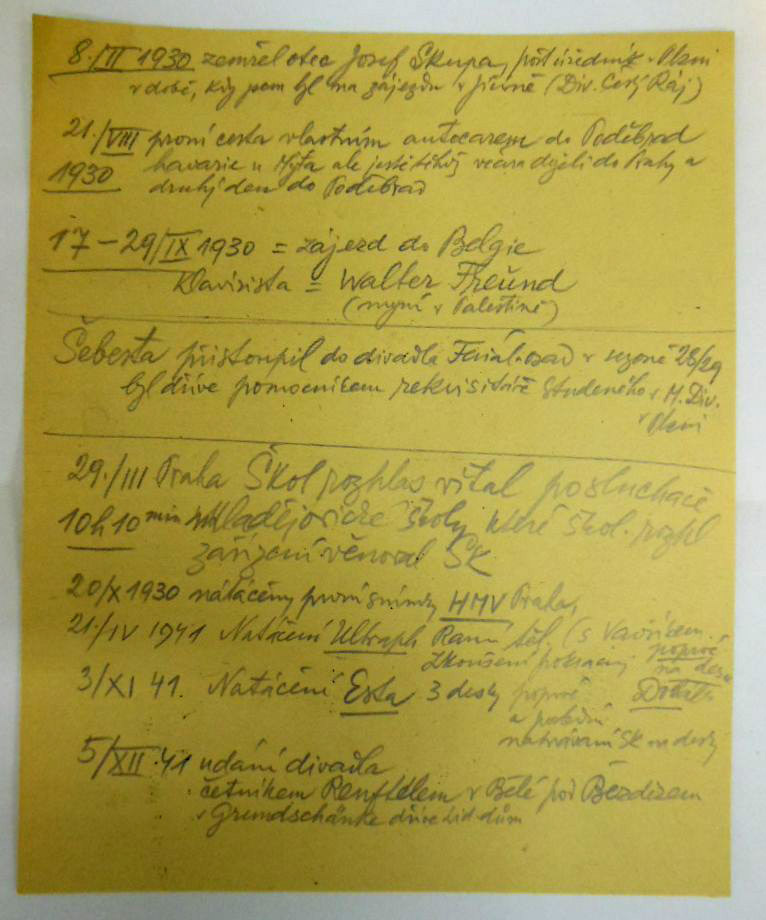 8./II 1930 zemřel otec Josef Skupa, pošt. úředník v Plzni
v době, kdy jsem byl na zájezdu v Jičíně (Div. Český Ráj)
21./VIII první cesta vlastním autocarem do Poděbrad
1930 havarie u Mýta ale ještě týž večer dojeli do Prahy a
druhý den do Poděbrad
17–29/IX 1930 = zájezd do Belgie
Klavirista = Walter Freund
(nyní v Palestině)
Šebesta přistoupil do divadla v sezoně 28/29
byl dříve pomocníkem rekvisitáře Studeného v M. Div.
v Plzni
29./III Praha Škol rozhlas vítal posluchače
10h10 min školy které škol. rozhl
zařízení věnoval ŠK
20/X 1930 natáčeny první snímky HMV Praha,
21./IV 1941 Natáčení Ultraph Ranní (s Vavříkem
poprvé
zkoušení na desce
3/XI 41. Natáčení Esta 3 desky poprvé
a
natáčení SK na desky
5/XII 41 udání divadla
četníkem Renftelem v Bělé pod Bezdězem
v Grundschänke dříve Lid. dům